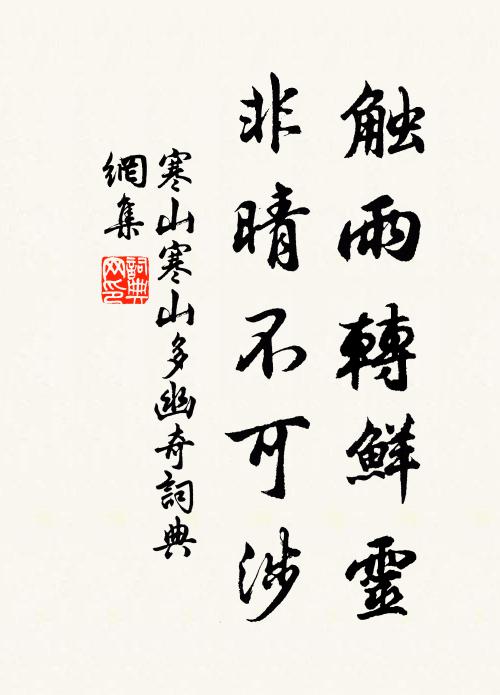 触雨轉鮮靈
非晴不可涉
寒山寒山多幽奇詞典
網集
詞典
网印